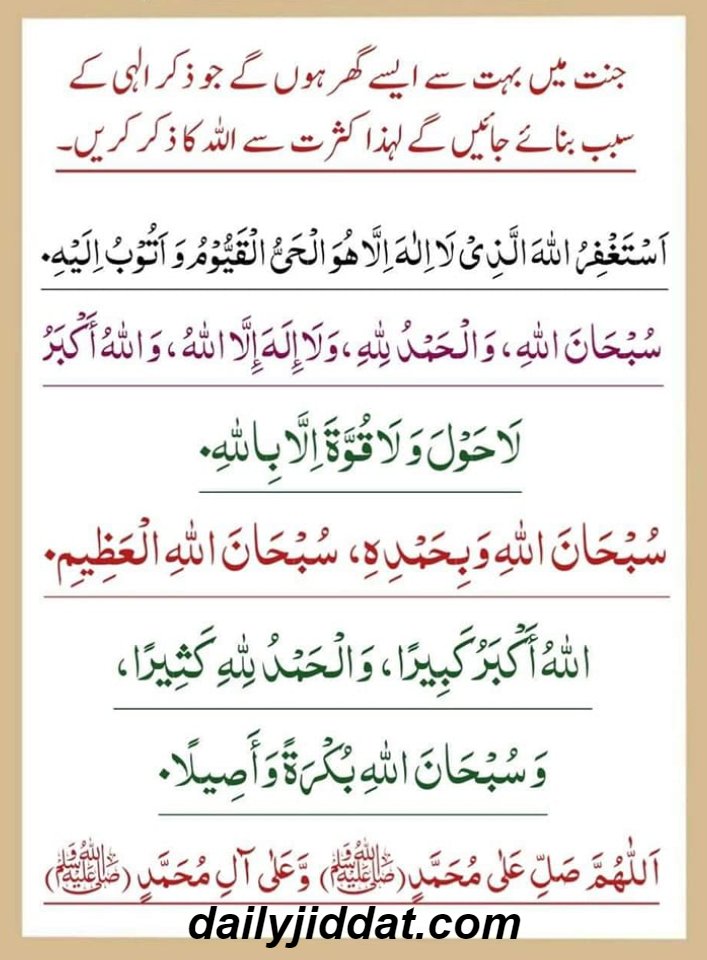 جنت میں بہت سے ایسے گھر ہوں گے جو ذکر الٰہی کے
سبب بنائے جائیں گے لہذا کثرت سے اللہ کا ذکر کریں۔
اَسْتَغْفِرُ اللهَ الَّذِىْ لَا اِلٰهَ اِلَّا هُوَ الْحَىُّ الْقَيُّوْمُ وَ اَتُوْبُ اِلَيْهِ۰
سُبْحَانَ اللهِ، وَالْحَمْدُ لِلّٰهِ، وَلَا إِلَهَ إِلَّا اللهُ، وَاللهُ أَكْبَرُ
لَا حَوْلَ وَ لَا قُوَّةَ اِلَّا بِاللهِ۰
سُبْحَانَ اللهِ وَبِحَمْدِهِ، سُبْحَانَ اللهِ الْعَظِيْمِ۰
اللهُ أَكْبَرُ كَبِيرًا، وَالْحَمْدُ لِلّٰهِ كَثِيرًا،
وَ سُبْحَانَ اللهِ بُكْرَةً وَ أَصِيلًا۰
اَللّٰهُمَّ صَلِّ عَلٰى مُحَمَّدٍ (ﷺ) وَّعَلٰى آلِ مُحَمَّدٍ (ﷺ)
dailyjiddat.com